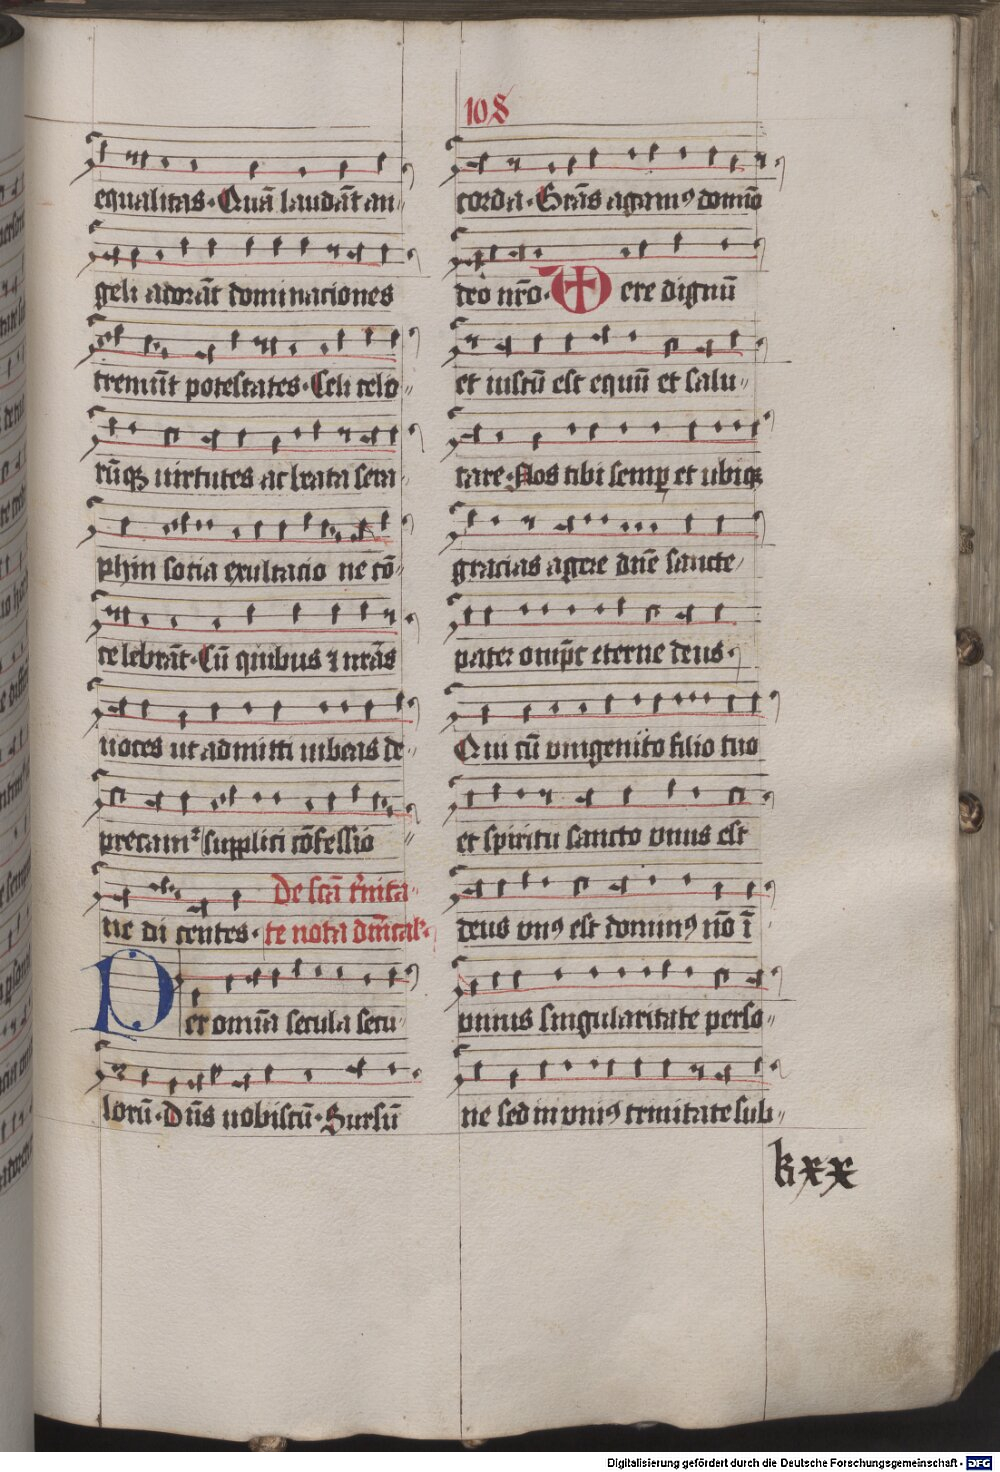 108
equalitas. Quā laudāt an„
geli adorāt dominaciones
tremūt potestates. Celi celo„
rūqꝫ uirtutes ac beata sera„
phin socia exultacio ne cō„
ce lebrāt. Cū quibus ⁊ nrās
uoces ut admitti iubeas de„
precamʳ suppl̄ici cōfessio„
ne di centes. De scā t̄nita„
te nota dn̄ical̓
Per om̄a secula secu„
lorū. Dn̄s uobiscū. Sursū
corda. Grās agamꝰ domīo
deo nr̄o. Vere dignū
et iustū est equū et salu„
tare. Nos tibi semꝑ et ubiqꝫ
gracias agere dn̄e sancte
pater omp̄c eterne deus.
Qui cū unigenito filio tuo
et spiritu sancto unus est
deus unꝰ est dominꝰ nō ī
unius singularitate perso„
ne sed in uniꝰ trinitate sub„
kxx
Digitalisierung gefördert durch die Deutsche Forschungsgemeinschaft - DFG